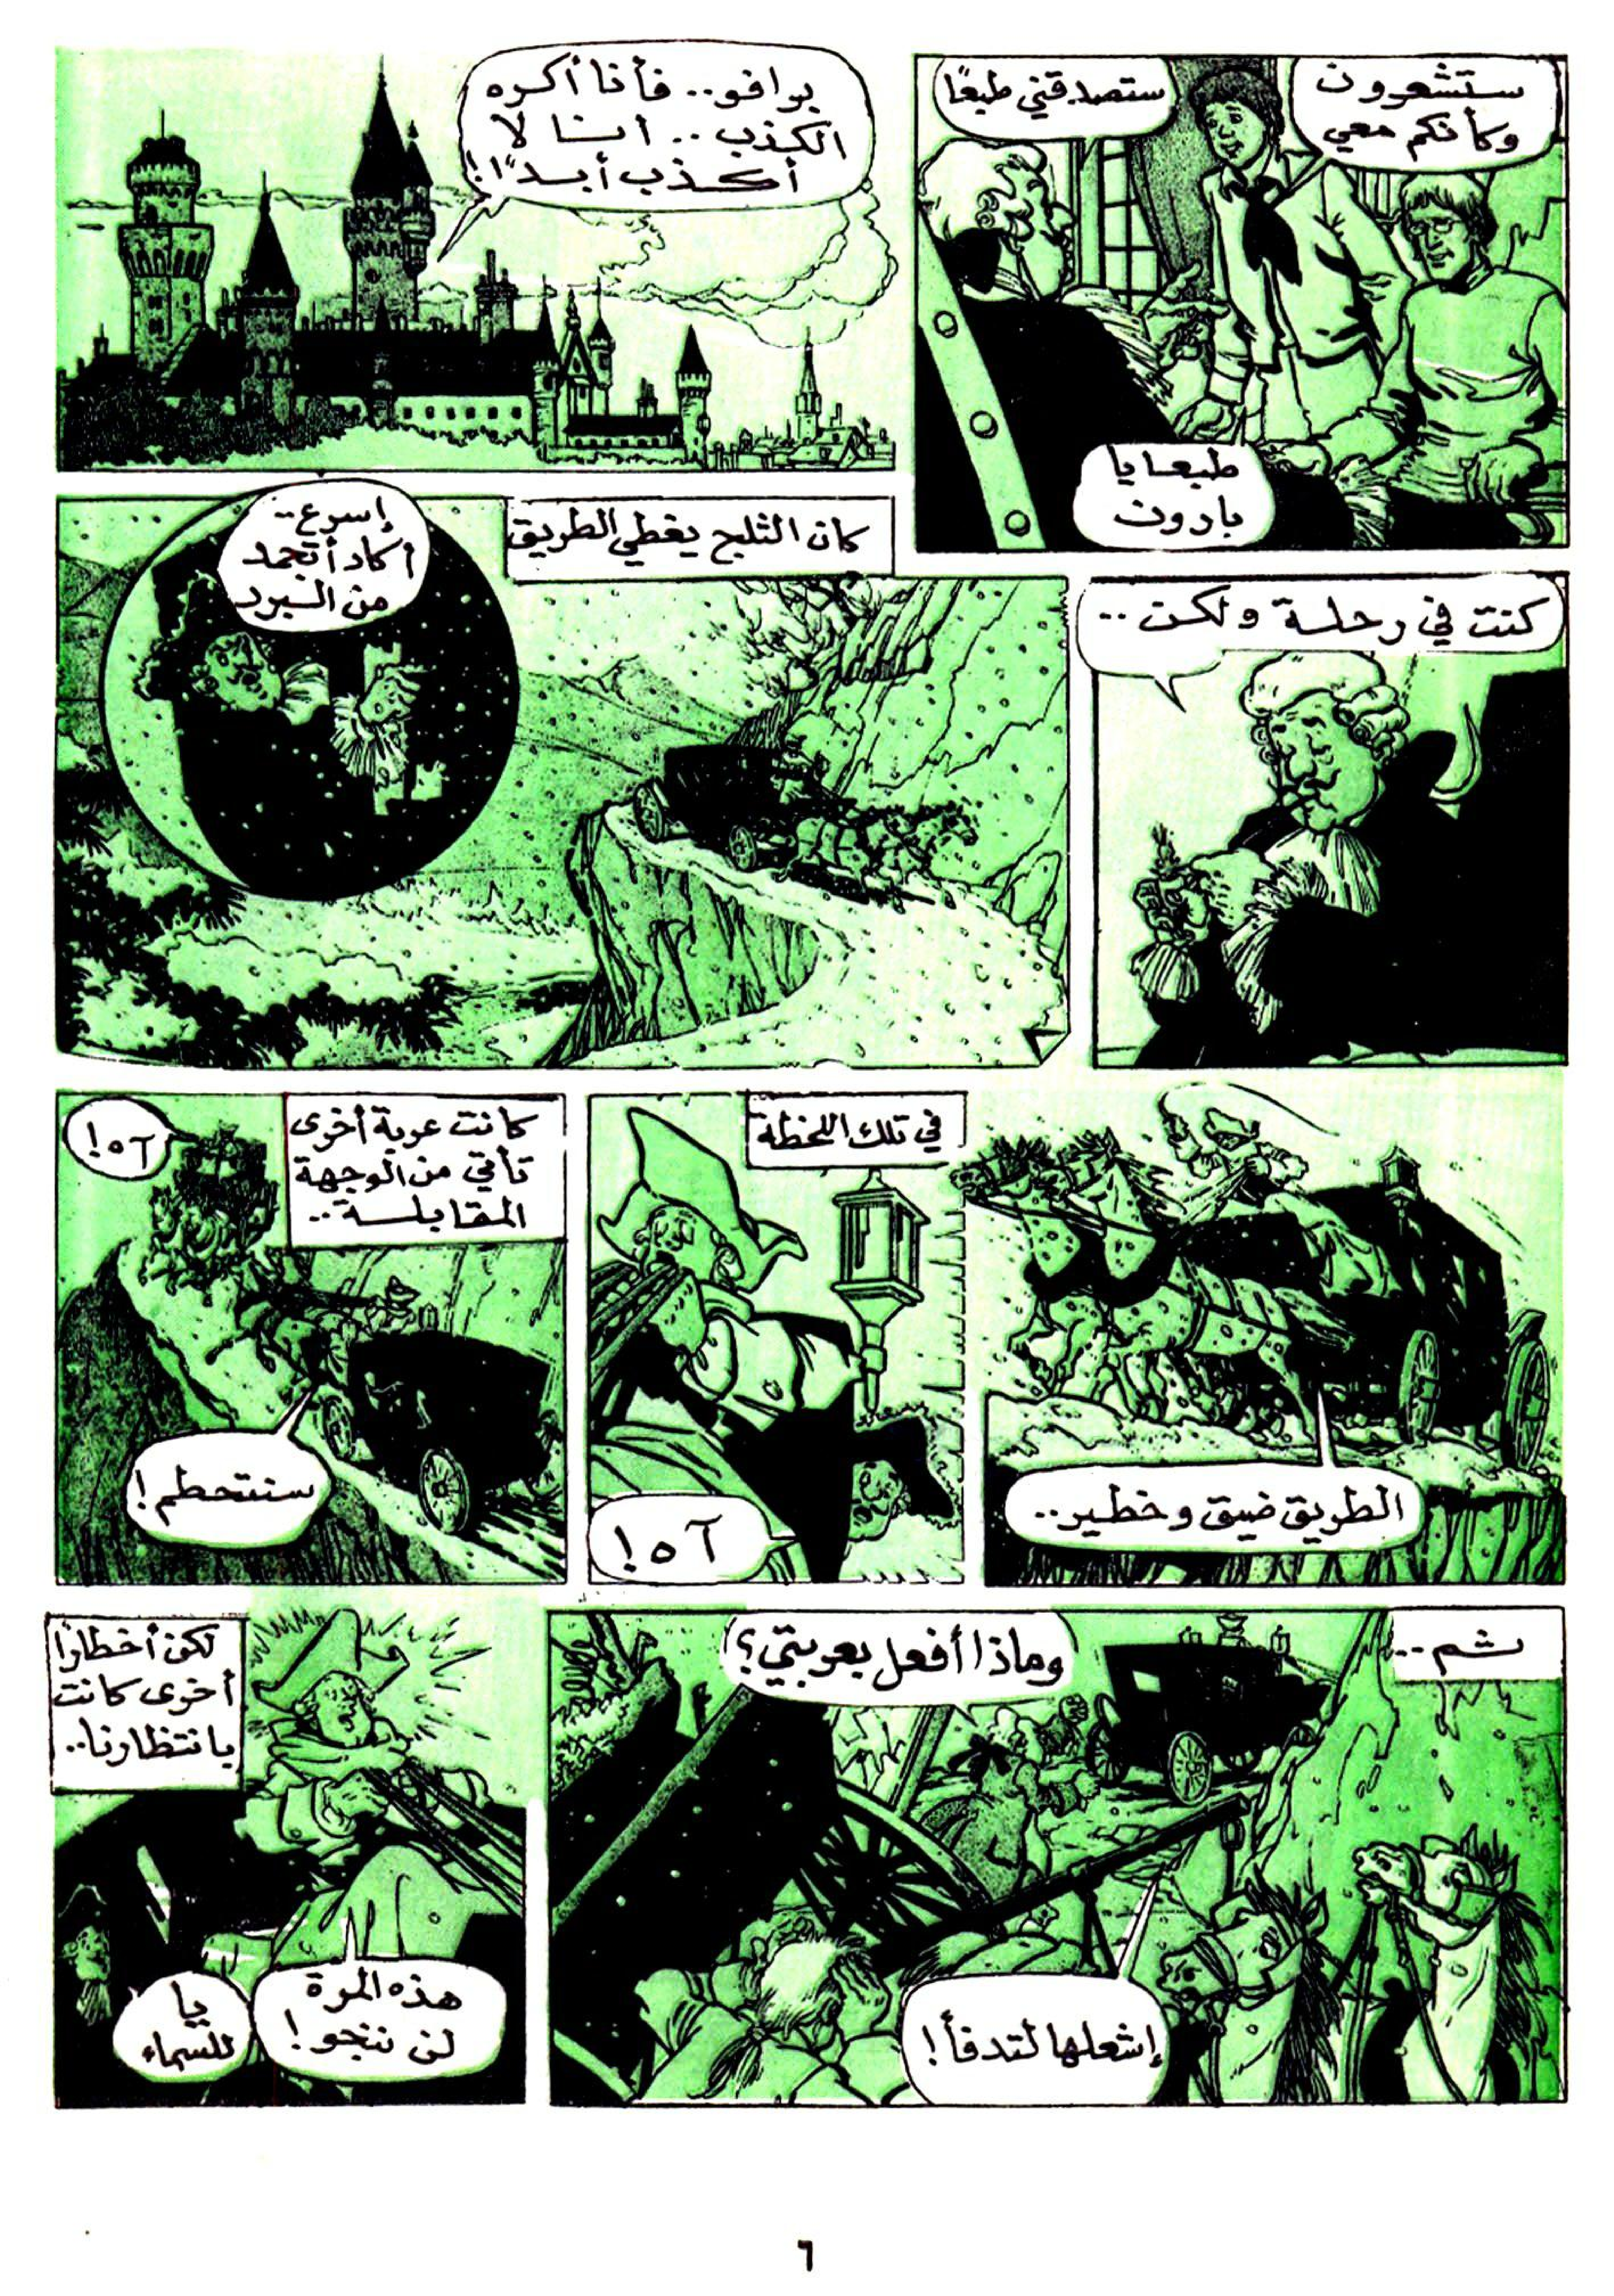 ستشعرون
وكأنكم معي
ستصدقني طبعًا
طبعا يا
بارون
برافو.. فأنا أكره
الكذب.. أنا لا
أكذب أبدًا!
كنت في رحلة ولكن..
كان الثلج يغطي الطريق
إسرع..
أكاد أتجمد
من البرد
الطريق ضيق وخطير..
في تلك اللحظة
آه!
كانت عربة أخرى
تأتي من الوجهة
المقابلة..
آه!
سنتحطم!
ثم..
وماذا أفعل بعربتي؟
إشعلها لتدفأ!
لكن أخطارًا
أخرى كانت
بانتظارنا..
هذه المرة
لن ننجو!
يا
للسماء
٦